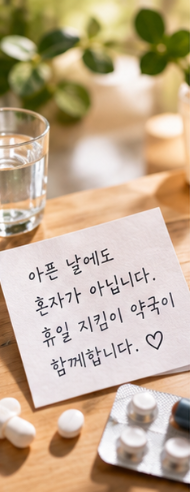 아픈 날에도
혼자가 아닙니다.
휴일 지킴이 약국이
함께합니다. ♡